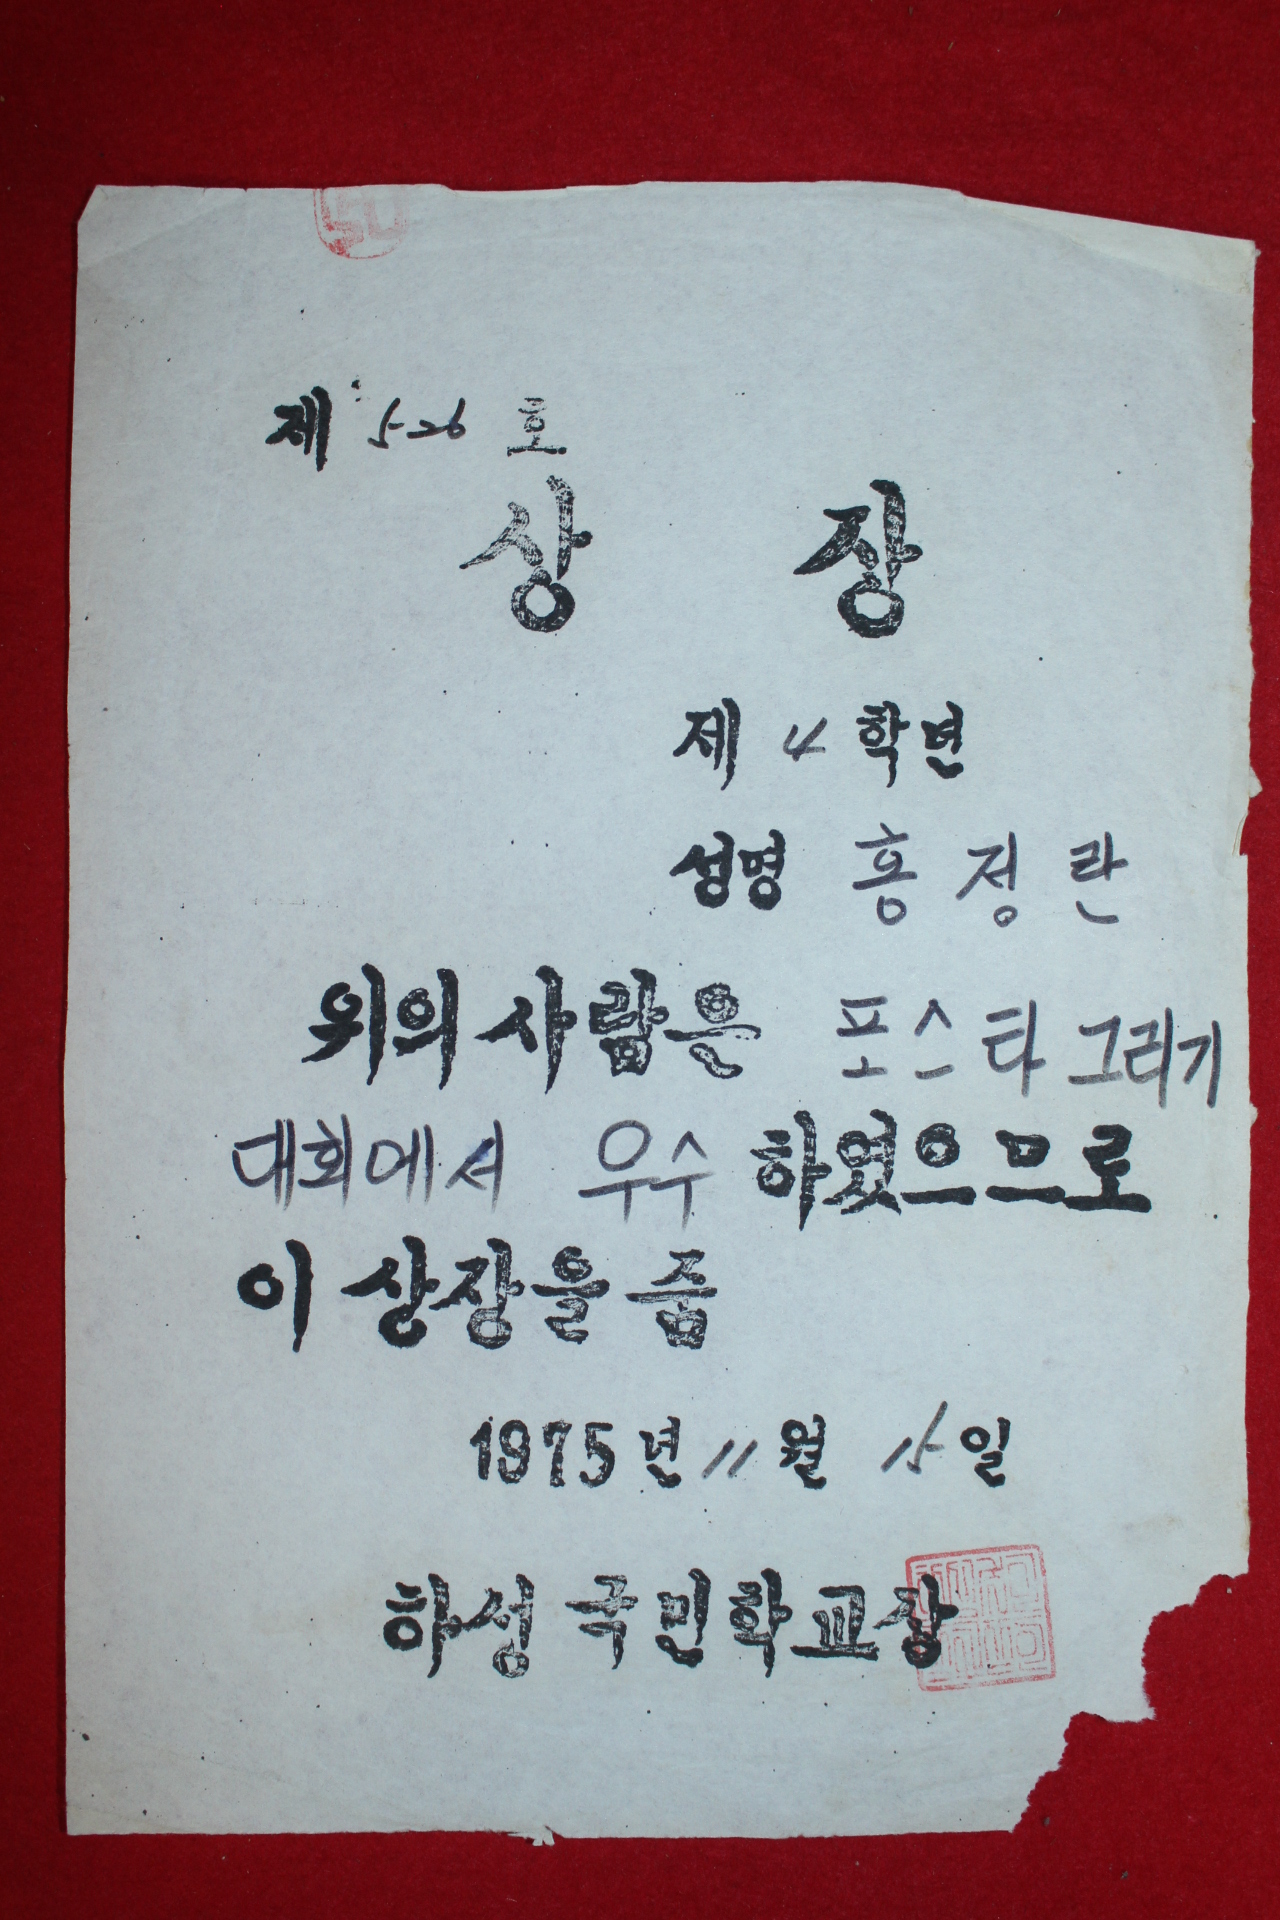 제 526 호
상 장
제 4 학년
성명 홍 정 란
위의 사람을 포스타 그리기
대회에서 우수 하였으므로
이 상장을 줌
1975년 11월 15일
하성 국민학교장